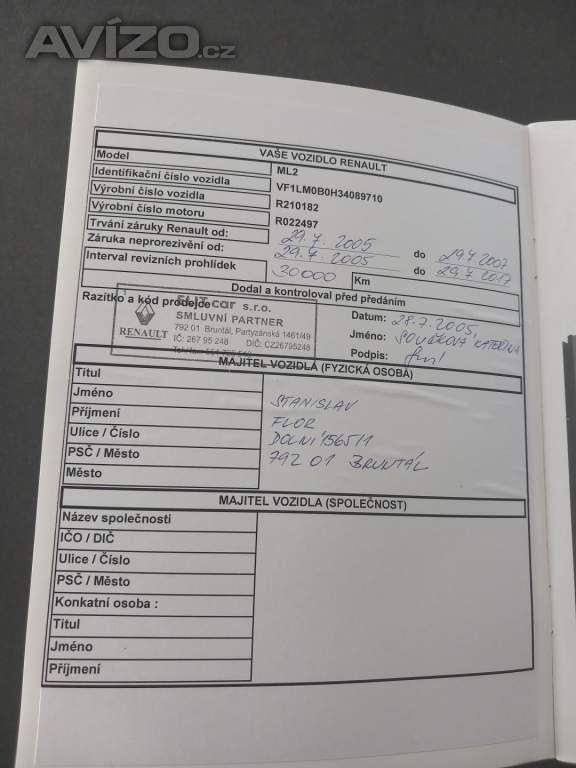 AVÍZO.cz
VAŠE VOZIDLO RENAULT
Model ML2
Identifikační číslo vozidla VF1LM0B0H34089710
Výrobní číslo vozidla R210182
Výrobní číslo motoru R022497
Trvání záruky Renault od: 29.7.2005 do 29.7.2007
Záruka neprorezivění od: 29.7.2005 do 29.7.2017
Interval revizních prohlídek 30000 Km
Dodal a kontroloval před předáním
Razítko a kód prodejce
car s.r.o.
SMLUVNÍ PARTNER
792 01 Bruntál, Partyzánská 1461/49
IČ: 267 95 248 DIČ: CZ26795248
RENAULT
Datum: 28.7.2005,
Jméno:
Podpis:
MAJITEL VOZIDLA (FYZICKÁ OSOBA)
Titul
Jméno STANISLAV
Příjmení FLOR
Ulice / Číslo DOLNÍ 1565/1
PSČ / Město 792 01 BRUNTÁL
Město
MAJITEL VOZIDLA (SPOLEČNOST)
Název společnosti
IČO / DIČ
Ulice / Číslo
PSČ / Město
Konkatní osoba :
Titul
Jméno
Příjmení